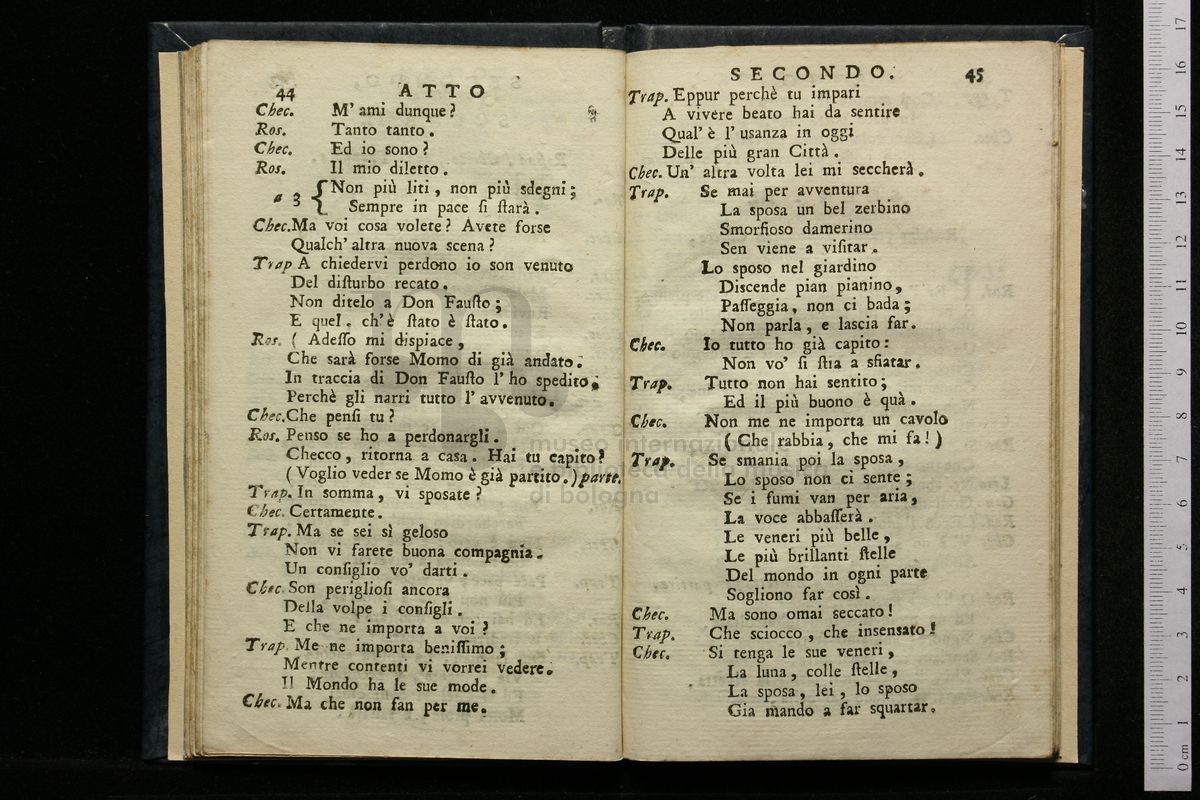 44 ATTO
Chec. M' ami dunque?
Ros. Tanto tanto.
Chec. Ed io sono?
Ros. Il mio diletto.
a 3 { Non più liti, non più sdegni;
Sempre in pace ſi ſtarà.
Chec. Ma voi cosa volete? Avete forse
Qualch' altra nuova scena?
Trap A chiedervi perdono io son venuto
Del diſturbo recato.
Non ditelo a Don Fauſto;
E quel. ch' è ſtato è ſtato.
Ros. ( Adeſſo mi dispiace,
Che sarà forse Momo di già andato.
In traccia di Don Fauſto l' ho spedito,
Perchè gli narri tutto l' avvenuto.
Chec. Che penſi tu?
Ros. Penso se ho a perdonargli.
Checco, ritorna a casa. Hai tu capito?
(Voglio veder se Momo è già partito.) parte.
Trap. In somma, vi sposate?
Chec. Certamente.
Trap. Ma se sei sì geloso
Non vi farete buona compagnia.
Un conſiglio vo' darti.
Chec. Son periglioſi ancora
Della volpe i conſigli.
E che ne importa a voi?
Trap. Me ne importa beniſſimo;
Mentre contenti vi vorrei vedere.
Il Mondo ha le sue mode.
Chec. Ma che non fan per me.
SECONDO. 45
Trap. Eppur perchè tu impari
A vivere beato hai da sentire
Qual' è l' usanza in oggi
Delle più gran Città.
Chec. Un' altra volta lei mi seccherà.
Trap. Se mai per avventura
La sposa un bel zerbino
Smorfioso damerino
Sen viene a viſitar.
Lo sposo nel giardino
Discende pian pianino,
Paſſeggia, non ci bada;
Non parla, e lascia far.
Chec. Io tutto ho già capito:
Non vo' ſi ſtia a sfiatar.
Trap. Tutto non hai sentito;
Ed il più buono è quà.
Chec. Non me ne importa un cavolo
(Che rabbia, che mi fa!)
Trap. Se smania poi la sposa,
Lo sposo non ci sente;
Se i fumi van per aria,
La voce abbaſſerà.
Le veneri più belle,
Le più brillanti ſtelle
Del mondo in ogni parte
Sogliono far così.
Chec. Ma sono omai seccato!
Trap. Che sciocco, che insensato!
Chec. Si tenga le sue veneri,
La luna, colle ſtelle,
La sposa, lei, lo sposo
Gia mando a far squartar.
museo internazionale
e biblioteca della musica
di bologna
0 cm 1 2 3 4 5 6 7 8 9 10 11 12 13 14 15 16 17